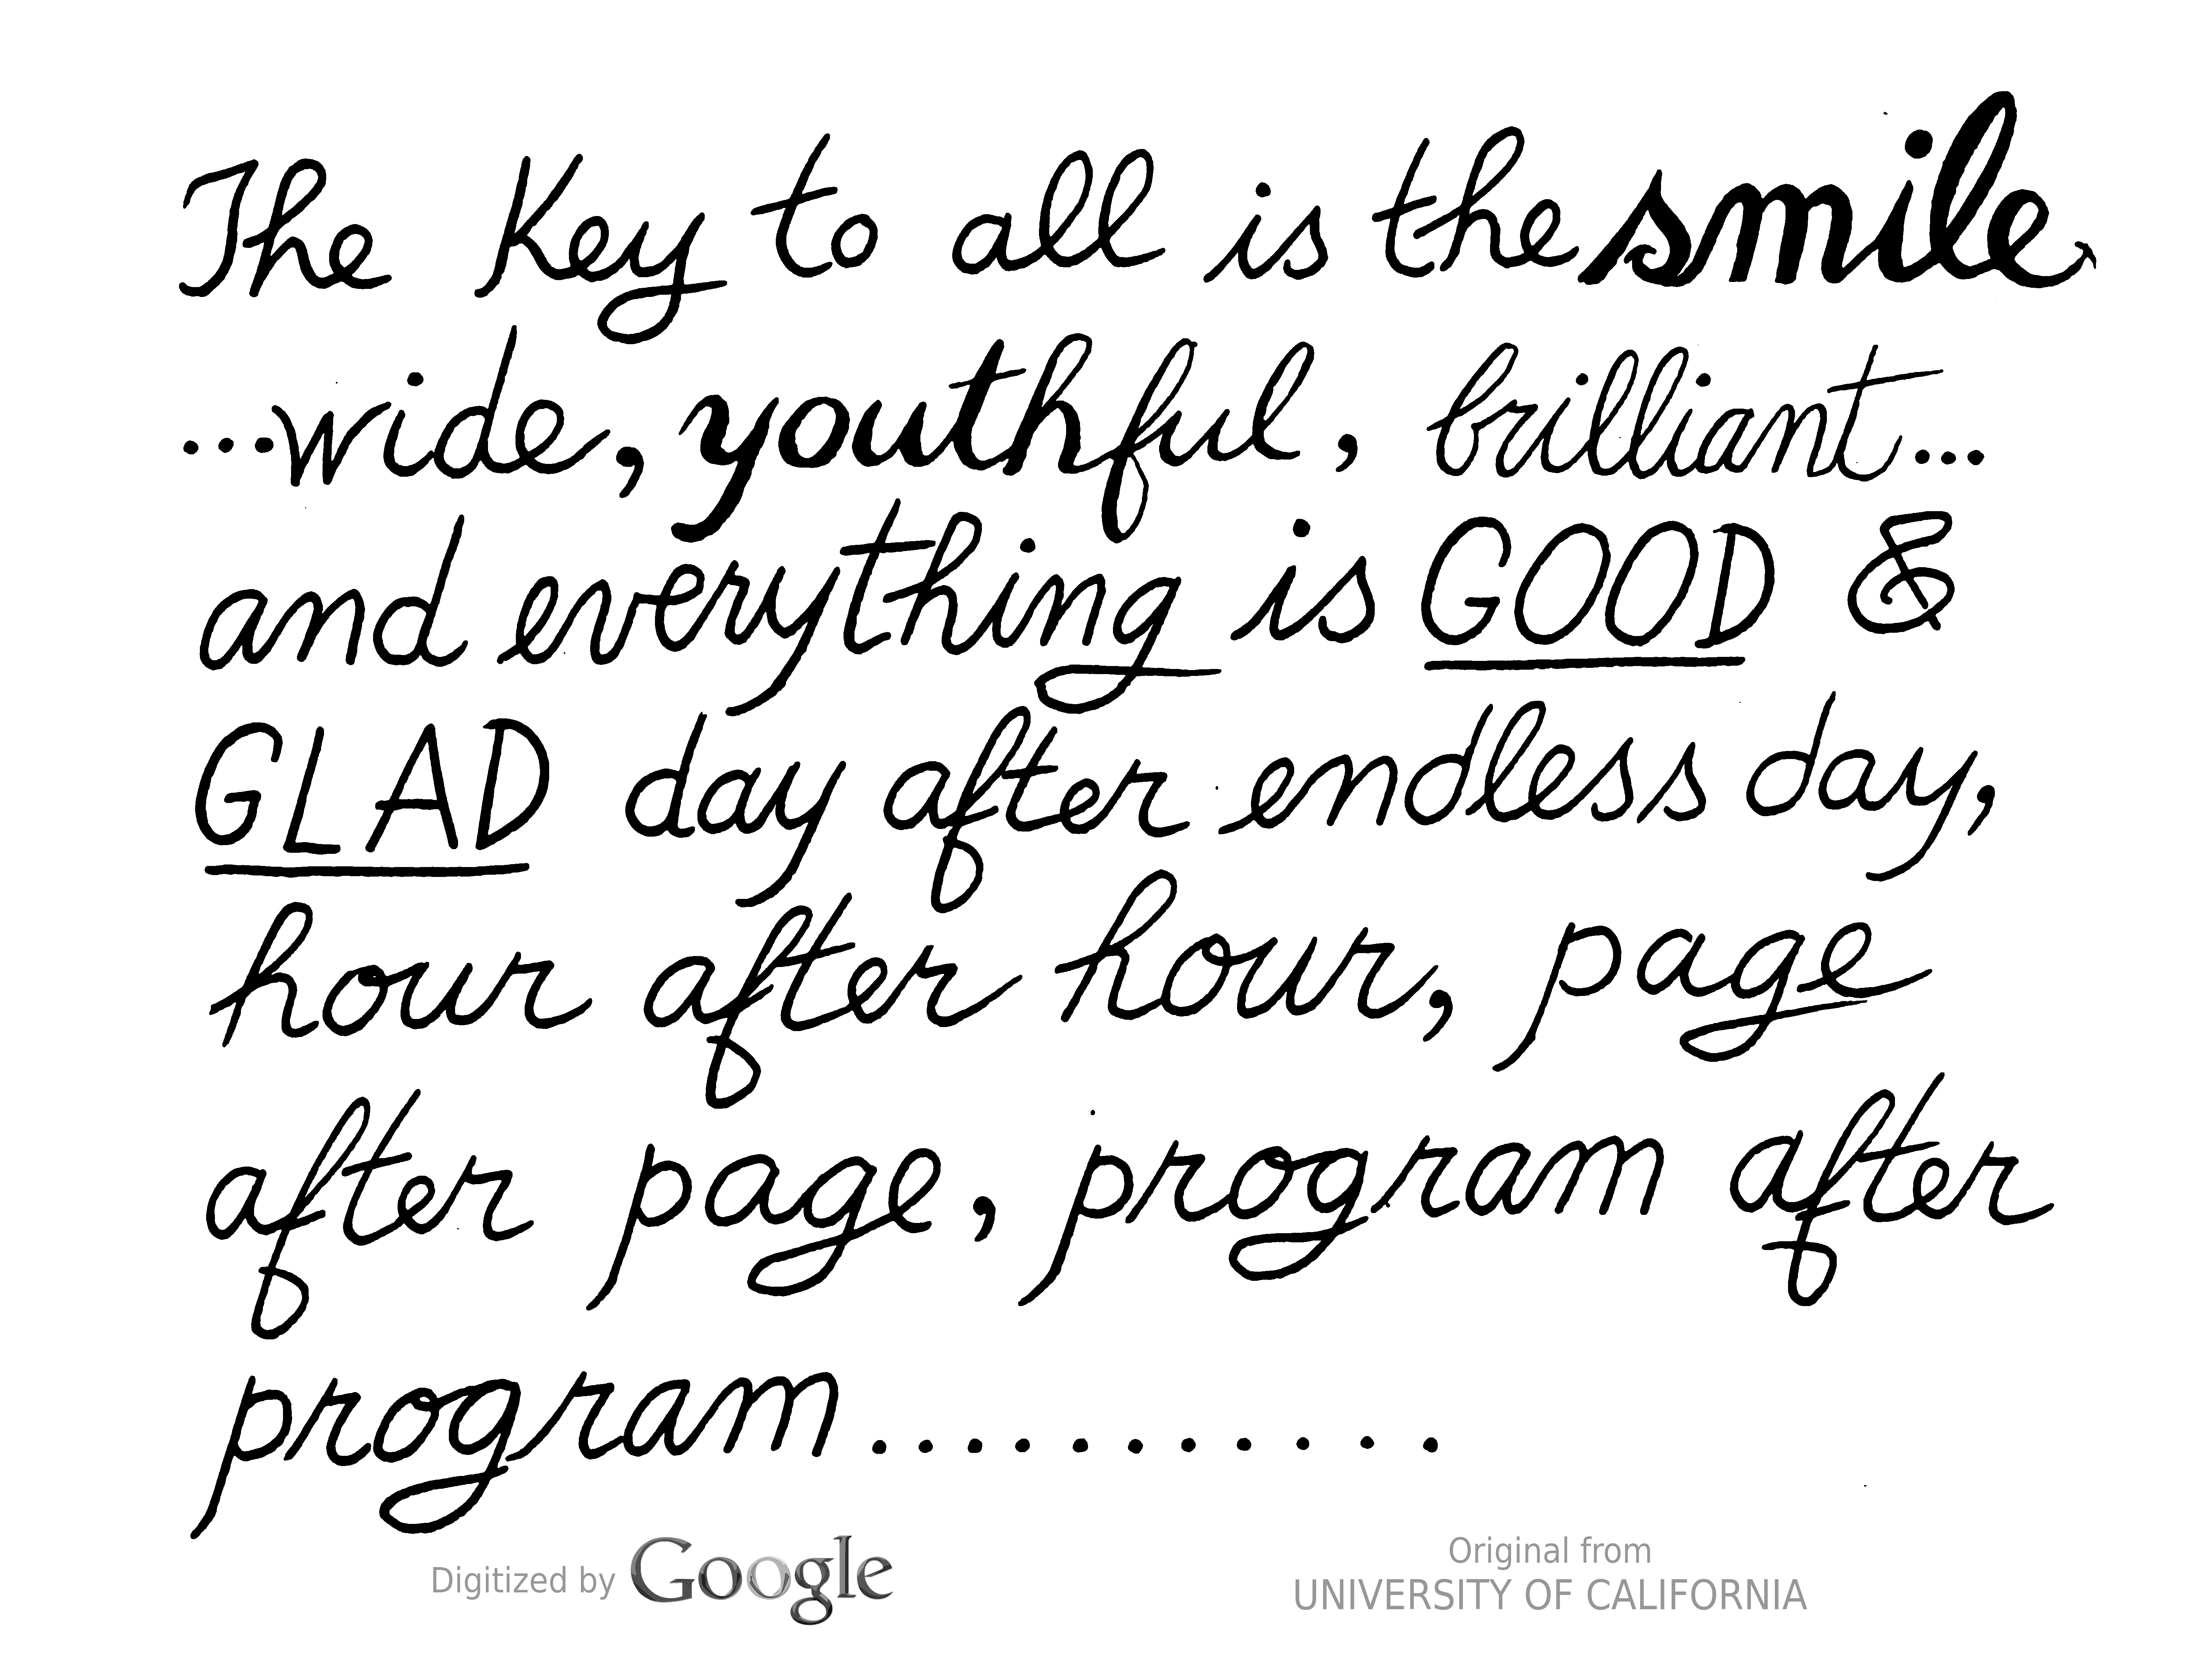 The key to all is the smile,
...wide, youthful, brilliant...
and everything is GOOD &
GLAD day after endless day,
hour after hour, page
after page, program after
program...........
Digitized by Google
Original from
UNIVERSITY OF CALIFORNIA